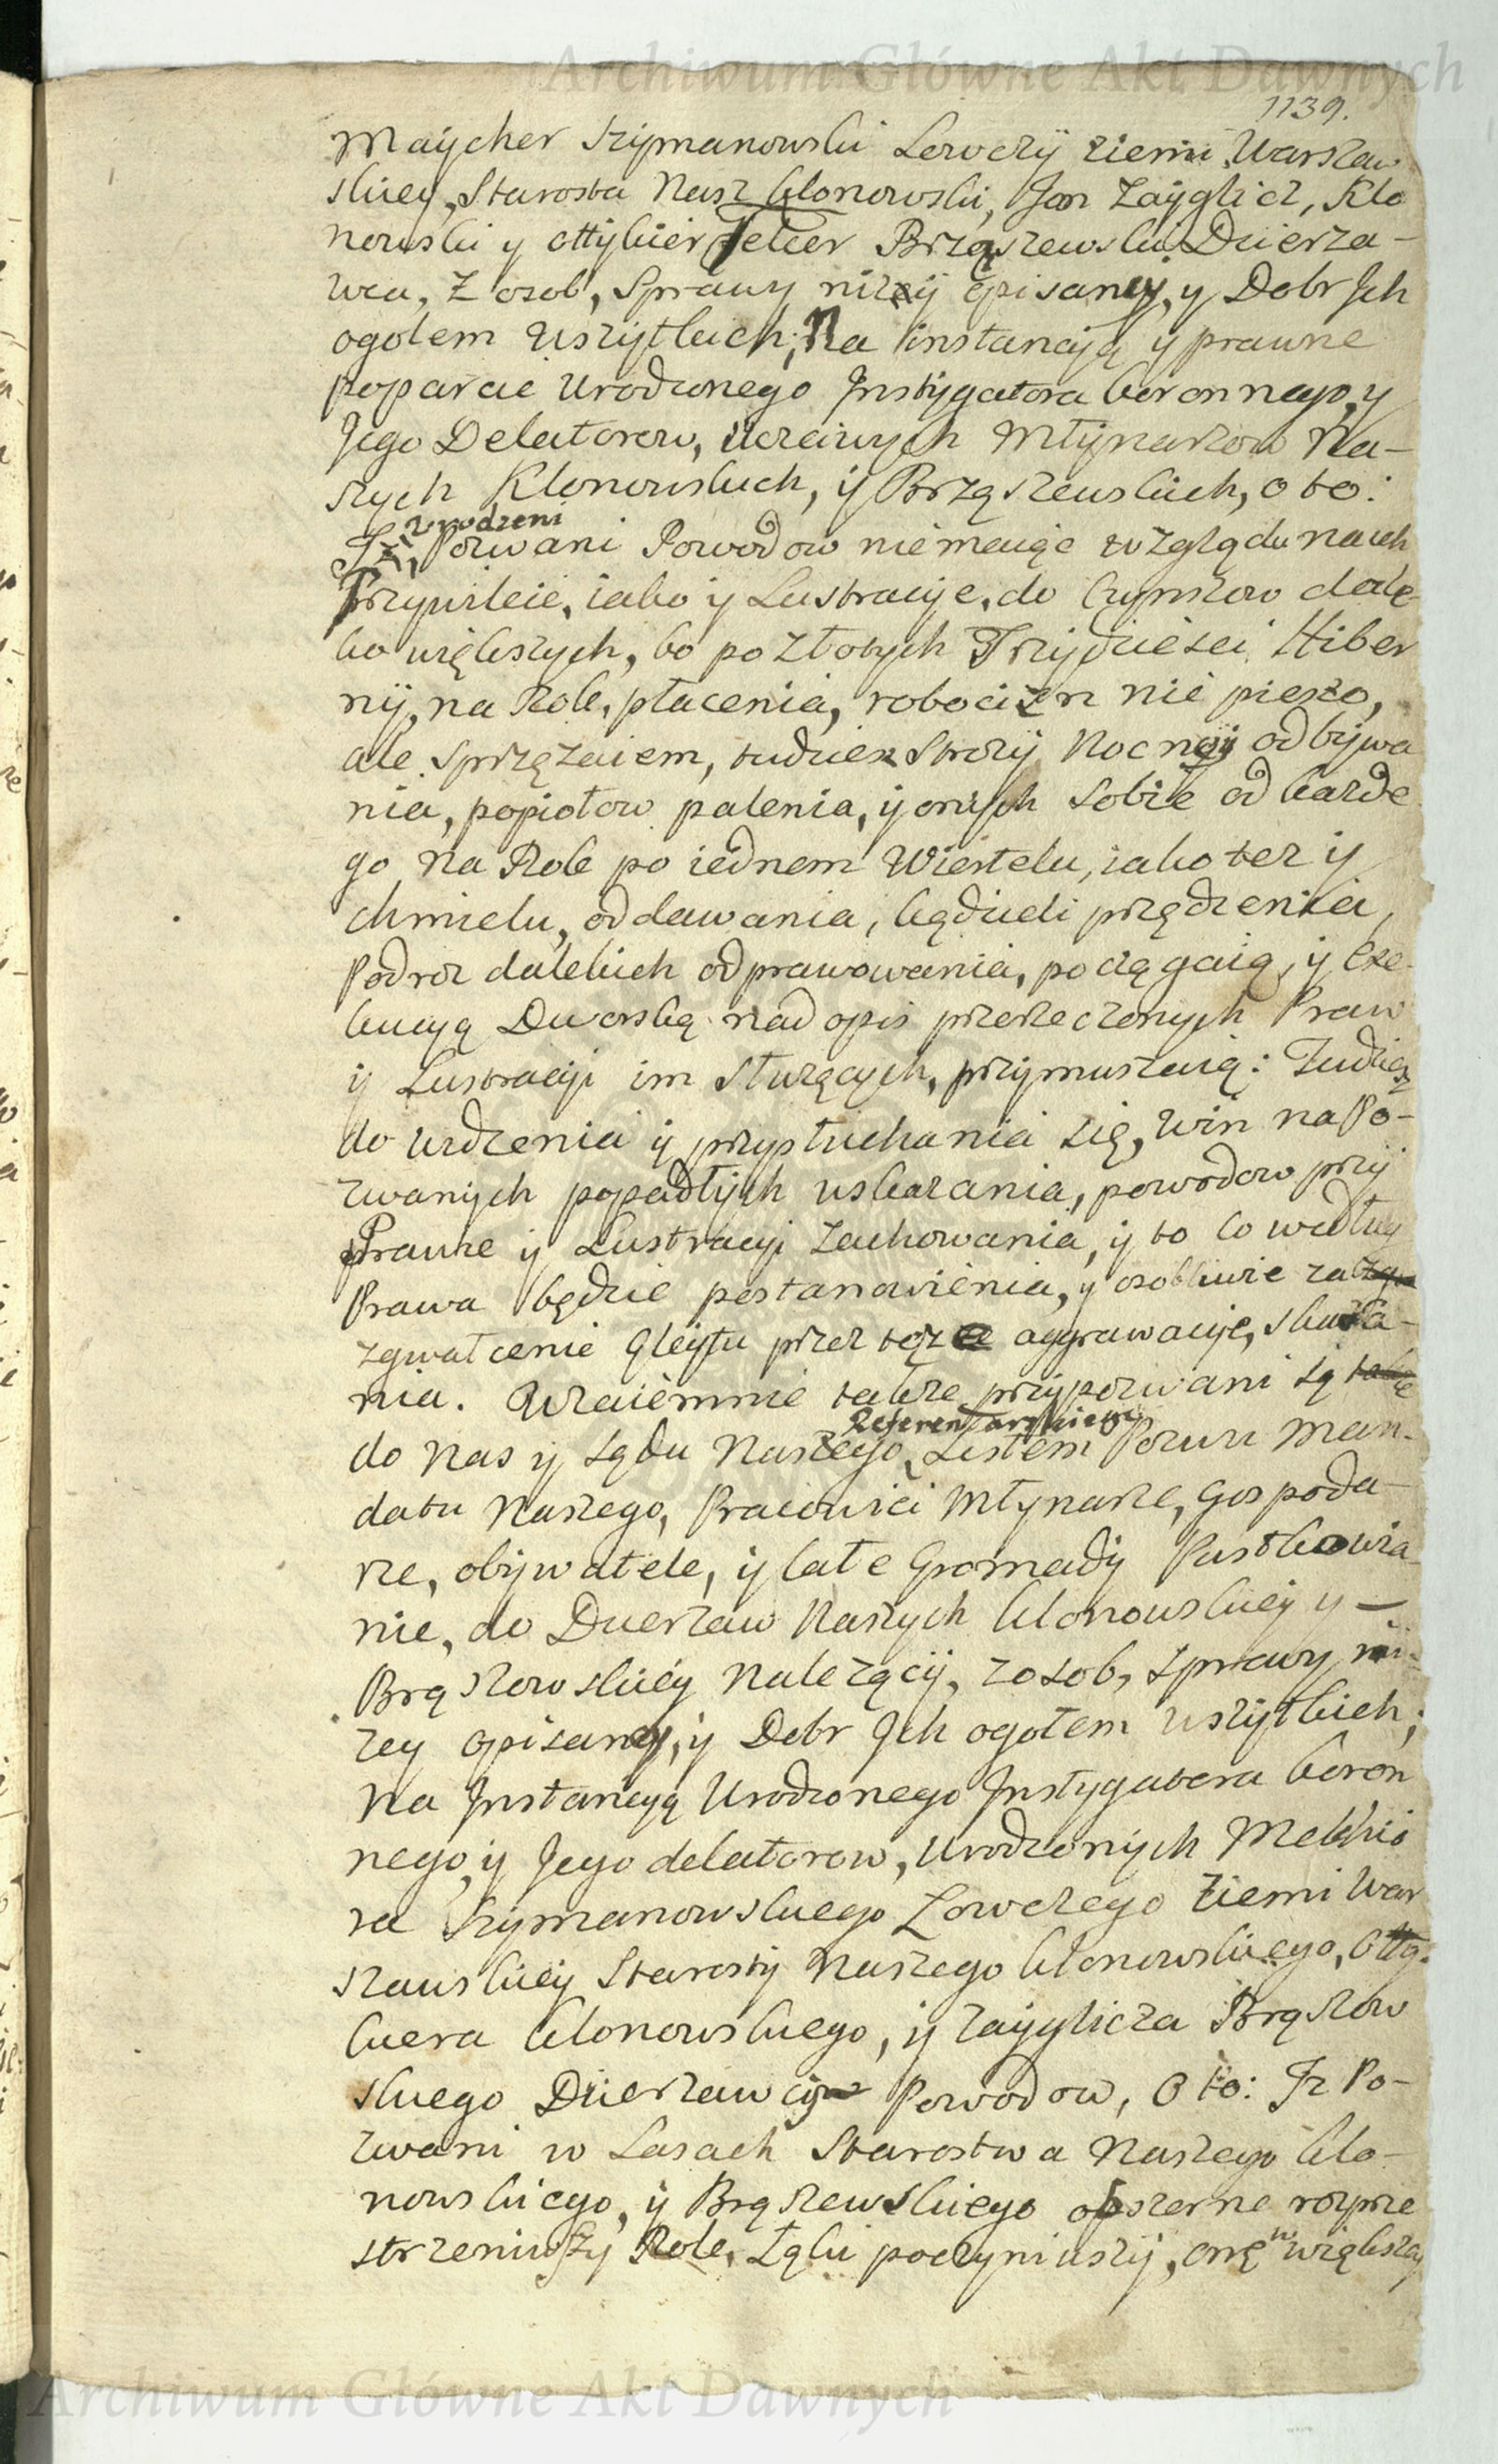 Archiwum Główne Akt Dawnych
1139.
Maÿcher Szÿmanowski Łowczÿ ziemi Warszaw
skiey, Starosta Nasz Klonowski, Jan Zaÿglicz, Klo
nowski y Ottÿkier Felter Brząszewski Dzierza-
wca, z osob, Sprawy niżÿ opisaney, y Dobr Jch
ogolem wszÿtkich; Na instancÿą ÿ prawne
poparcie Urodzonego Jnstÿgatora koronnego, y
Jego Delatorow, Uczciwych Młÿnarzow Na-
szych Klonowskich, ÿ Brząszewskich, o to:
urodzeni
Jż, Pozwani Powodow niemaiąc względu na ich
Przywileie, iako ÿ Lustracÿe, do Czynszow dale-
ko większych, bo po złotych Trzÿdziesci Hiber
nÿ, na Rok, płacenia, robocizn nie pieszo,
ale sprzęzaiem, tudziesz Strozÿ Nocnÿ odbÿwa
nia, popiołow palenia, ÿ onÿch sobie od kazde
go na Rok po iednem Wiertelu, iako tez ÿ
chmielu, oddawania, kądzieli przędzenia,
Podroz dalekich odprawowania, pociągaią, ÿ Exe-
kucyą Dworską nad opis przerzeczonych Praw
ÿ Lustracÿi im służących, przÿmuszaią: Tudziesz
do widzenia ÿ przysłuchania się, win na Po-
zwanÿch popadłÿch wskazania, powodow przÿ
Prawie ÿ Lustracÿi zachowania, ÿ to co według
Prawa będzie postanowienia, y osobliwie za
zgwałcenie Gleÿtu przez też aggrawacÿe, skaza-
nia. Wzaiemnie takze przÿpozwani są
Referendarskiego
do Nas ÿ Sądu Naszego, Listem Pozwu Man-
datu Naszego, Pracowici Młynarze, Gospoda-
rze, obÿwatele, ÿ całe Gromadÿ Pustkowia-
nie, do Dzierzaw Naszych Klonowskieÿ y -
Brąszowskieÿ Należącÿ, z osob, sprawy ni-
zey opisaneÿ, ÿ Dobr Jch ogołem wszÿtkich;
Na Jnstancyą Urodzonego Jnstygatora koron
nego, ÿ Jego delatorow, Urodzonÿch Melchio
ra Szÿmanowskiego Łowczego Ziemi War
szawskieÿ Starostÿ Naszego Klonowskiego, Ottÿ-
kiera Klonowskiego, ÿ Zaÿglicza Brąszow
skiego Dzierzawcow Powodow, O to: Jz Po-
zwani w Lasach Starostwa Naszego Klo-
nowskiego, ÿ Brąszewskiego obszerne rozprze
strzeniwszy Role, Łąki poczyniwszÿ, onę w większą
Archiwum Główne Akt Dawnych